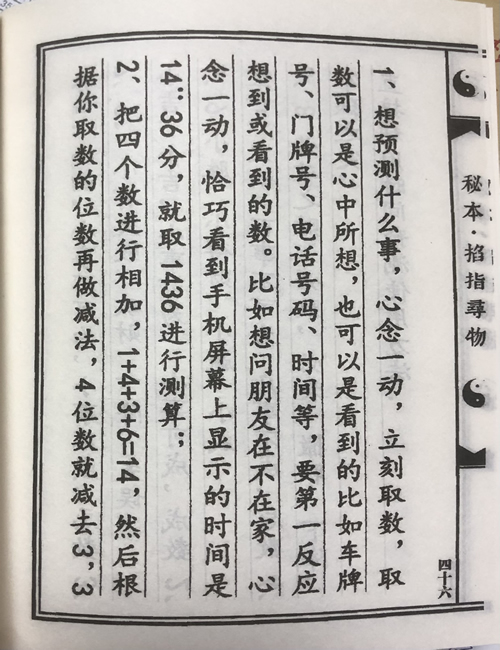 秘本·掐指尋物
四十六
1、想预测什么事，心念一动，立刻取数，取
数可以是心中所想，也可以是看到的比如车牌
号、门牌号、电话号码、时间等，要第一反应
想到或看到的数。比如想问朋友在不在家，心
念一动，恰巧看到手机屏幕上显示的时间是
14"36分，就取1436进行测算；
2、把四个数进行相加，1+4+3+6=14，然后根
据你取数的位数再做减法，4位数就减去3，3